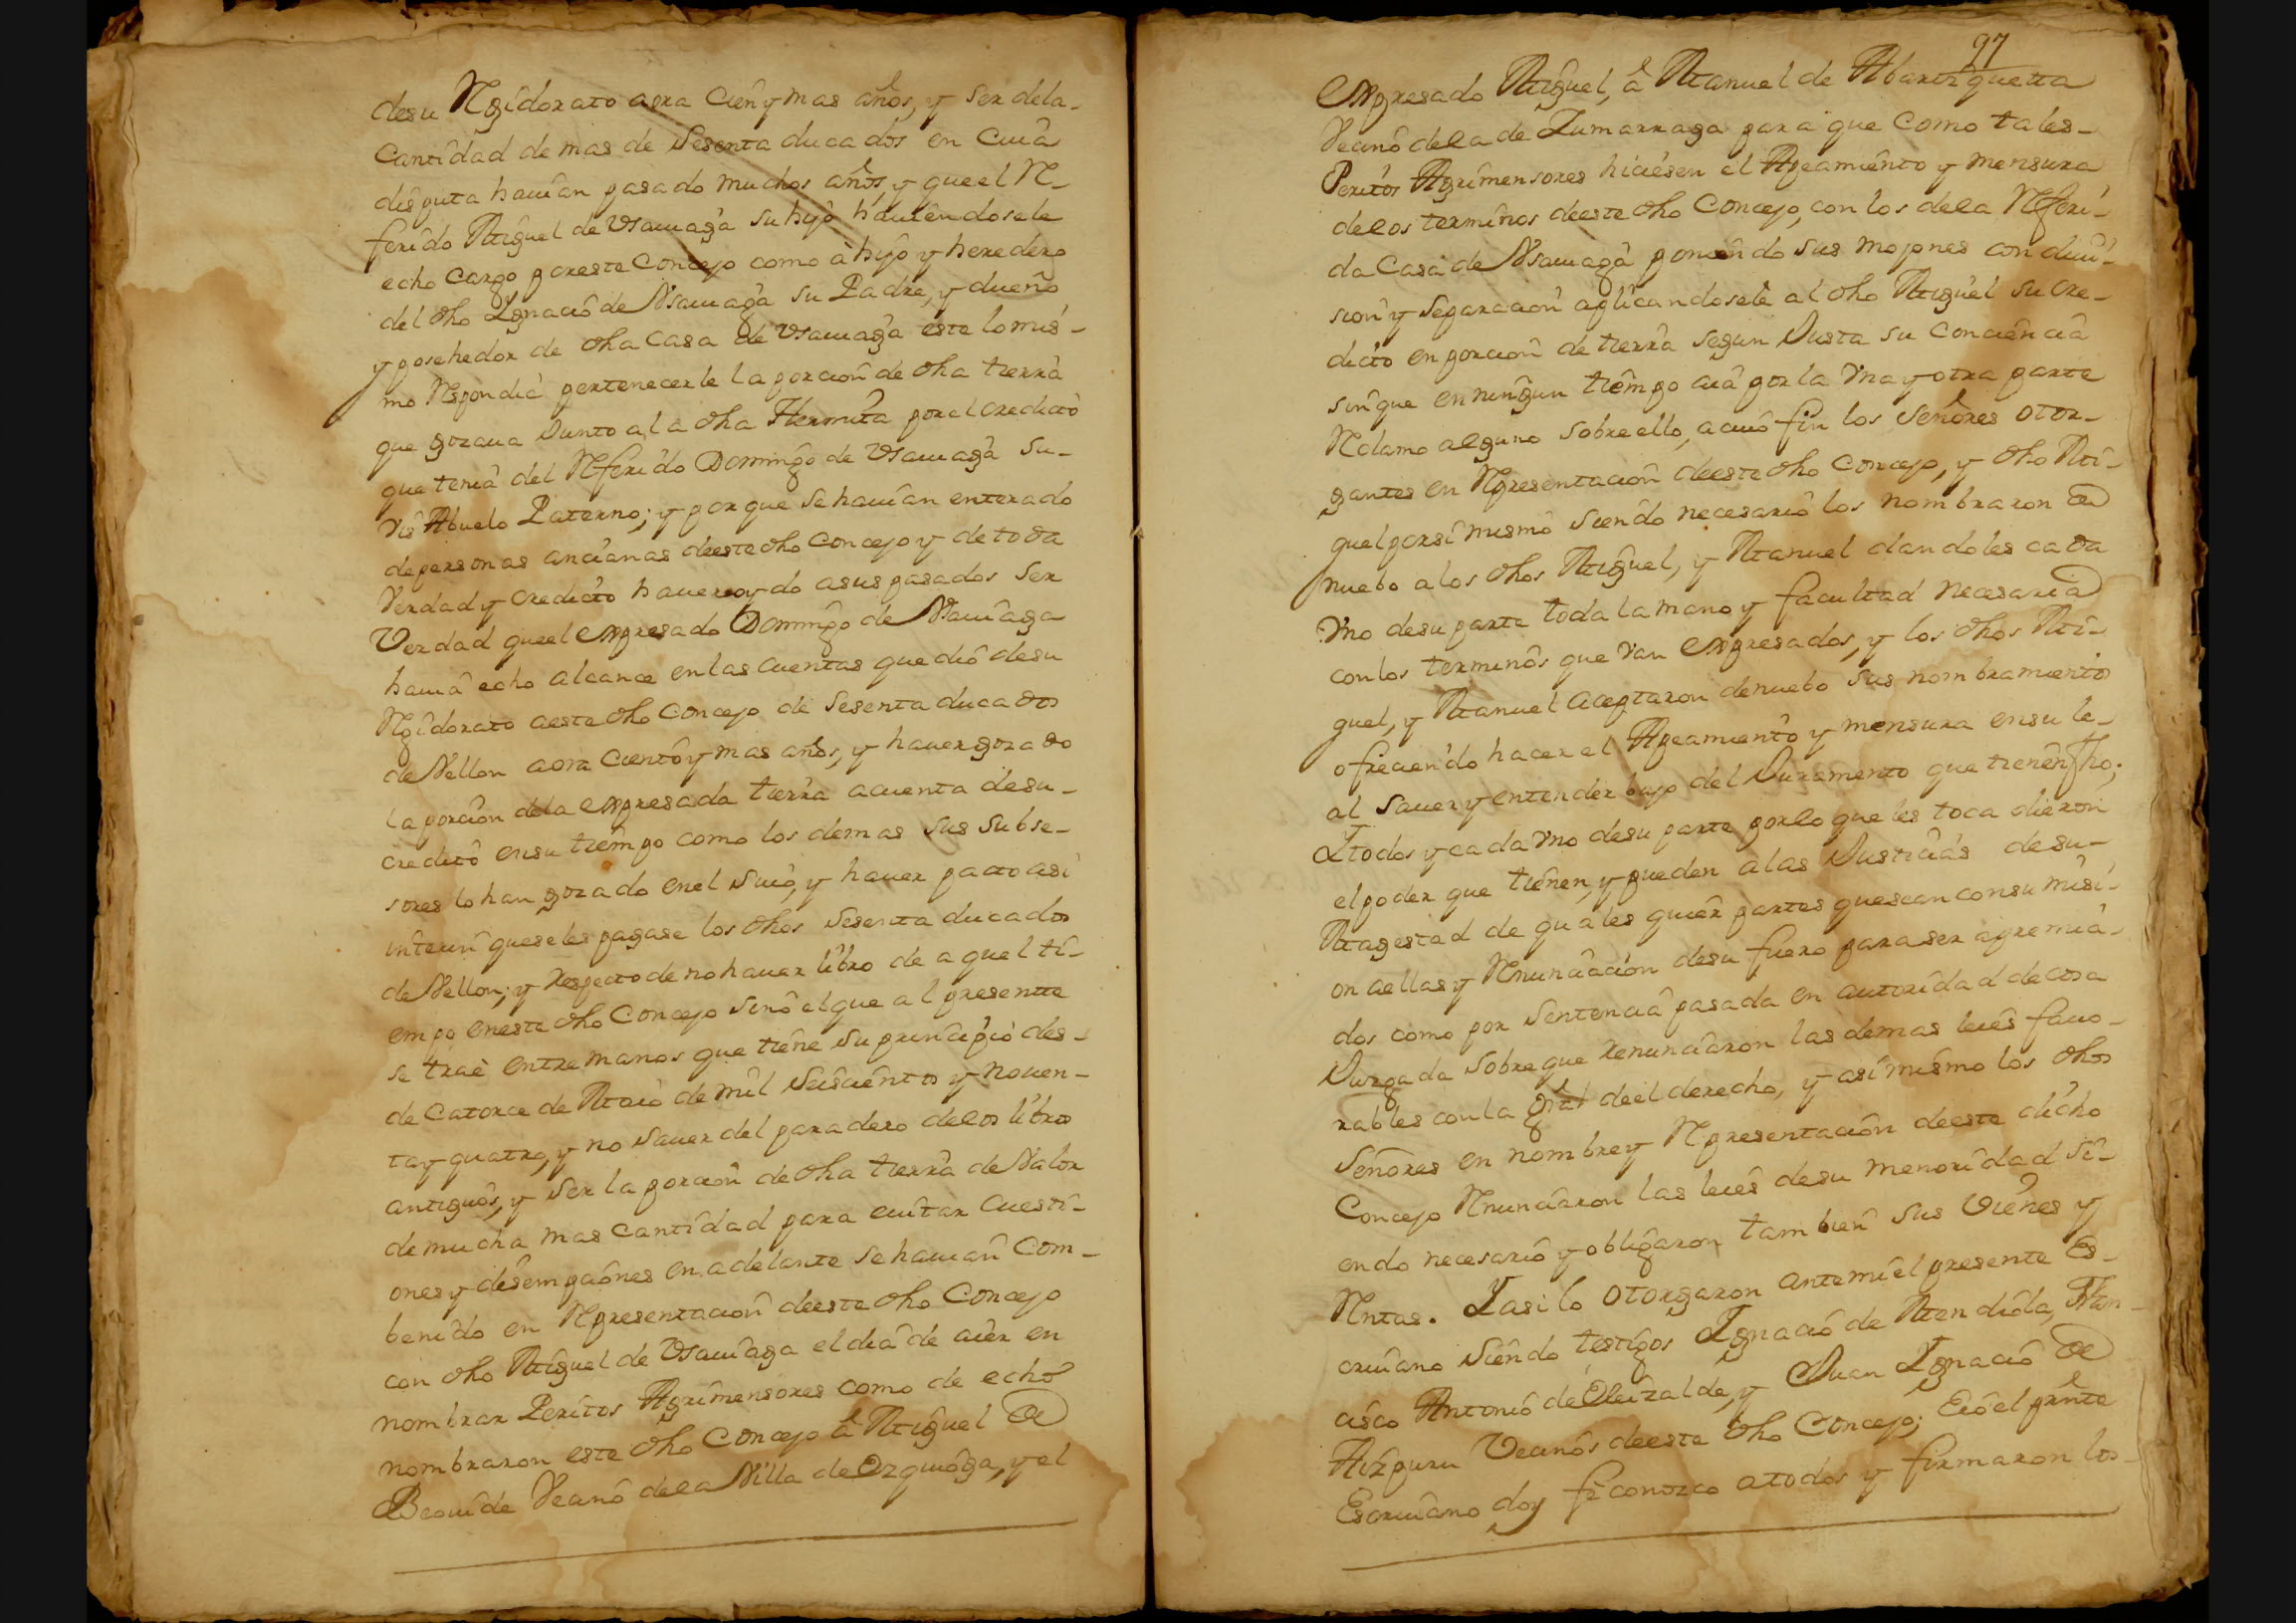 desu Regidorato aora Cien y mas años, y Ser dela-
Cantidad de mas de Sesenta ducados en Cuia
disputa hauian pasado muchos años, y que el Re-
ferido Miguel de Vsamaga Su hijo hauiendosele
echo Cargo por este Concejo como à hijo y heredero
del dho Ignacio de Vsamaga su Padre, y dueño
y posehedor de dha Casa de Vsamaga este lo mis-
mo Respondia pertenecerle la porcion de dha tierra
que gozaua Junto a la dha Hermita por el Credito
que tenia del Referido Domingo de Vsamaga Su-
Vis Abuelo Paterno; y porque Se hauian enterado
de personas ancianas deeste dho Concejo y de toda
Verdad y Credito hauer oydo a sus pasados Ser
Verdad que el expresado Domingo de Vsamaga
hauia echo alcance en las Cuentas que dió desu
Regidorato aeste dho Concejo de Sesenta ducados
de Vellon aora Ciento y mas años, y hauer gozado
la porcion dela expresada tierra acuenta desu-
credito en su tiempo como los demas sus Subse-
sores lo han gozado en el Suio, y hauer pacto asi
interin que seles pagase los dhos Sesenta ducados
de Vellon; y respecto de no hauer libro de aquel ti-
empo en este dho Concejo sino el que al presentte
se traè entre manos que tiene Su principio des-
de Catorce de Maio de mil Seiscientos y nouen-
ta y quatro, y no Sauer del paradero delos libros
antiguos, y Ser la porcion de dha tierra de Valor
de mucha mas Cantidad para euitar Cuesti-
ones y desempciones en adelante se hauian Com-
benido en Representacion deeste dho Concejo
con dho Miguel de Vsamaga el dia de aier en
nombrar Peritos Agrimensores como de echo
nombraron este dho Concejo à Miguel de
Beouide Vecino dela Villa de Ezquioga, y el
97
expresado Miguel, à Manuel de Abarizquetta
Vecino dela de Zumarraga para que Como tales-
Peritos Agrimensores hiciesen el Apeamiento y mensura
delos terminos deeste dho Concejo, con los dela Referi-
da Casa de Vsamaga poniendo sus mojones con diui-
sion y Separacion aplicandosele al dho Miguel su Cre-
dicto en porcion de tierra segun Justa su Conciencia
sin que en ningun tiempo aia por la Vna y otra parte
Reclamo alguno sobre ello, a cuio fin los Señores otor-
gantes en Representacion deeste dho Concejo, y dho Mi-
guel por si mismo siendo necesario los nombraron de
nuebo a los dhos Miguel, y Manuel dandoles cada
Vno desu parte toda la mano y facultad necesaria
con los terminos que Van expresados, y los dhos Mi-
guel, y Manuel aceptaron denuebo sus nombramientos
ofreciendo hacer el Apeamiento y mensura en su le-
al Sauer y entender bajo del Juramento que tienen fho;
I todos y cada Vno desu parte por lo que les toca dieron
el poder que tienen, y pueden a las Justicias de su-
Magestad de quales quier partes que sean con su misi-
on aellas y Renunciacion desu fuero para ser apremia-
dos como por Sentencia pasada en autoridad de cosa
Juzgada Sobre que renunciaron las demas leies fauo-
rables con la gral deel derecho, y asi mismo los dhos
Señores en nombre y Representacion deeste dicho
Concejo Renunciaron las leies desu menoridad Si-
endo necesario y obligaron tambien sus Vienes y
Rentas. I asi lo otorgaron ante mi el presente Es-
criuano Siendo testigos Ignacio de Mendiola, Fran-
cisco Antonio de Eleizalde, y Juan Ignacio de
Aizpuru Vecinos deeste dho Concejo; E io el prnte
Escriuano doy fe conozco a todos y firmaron los-